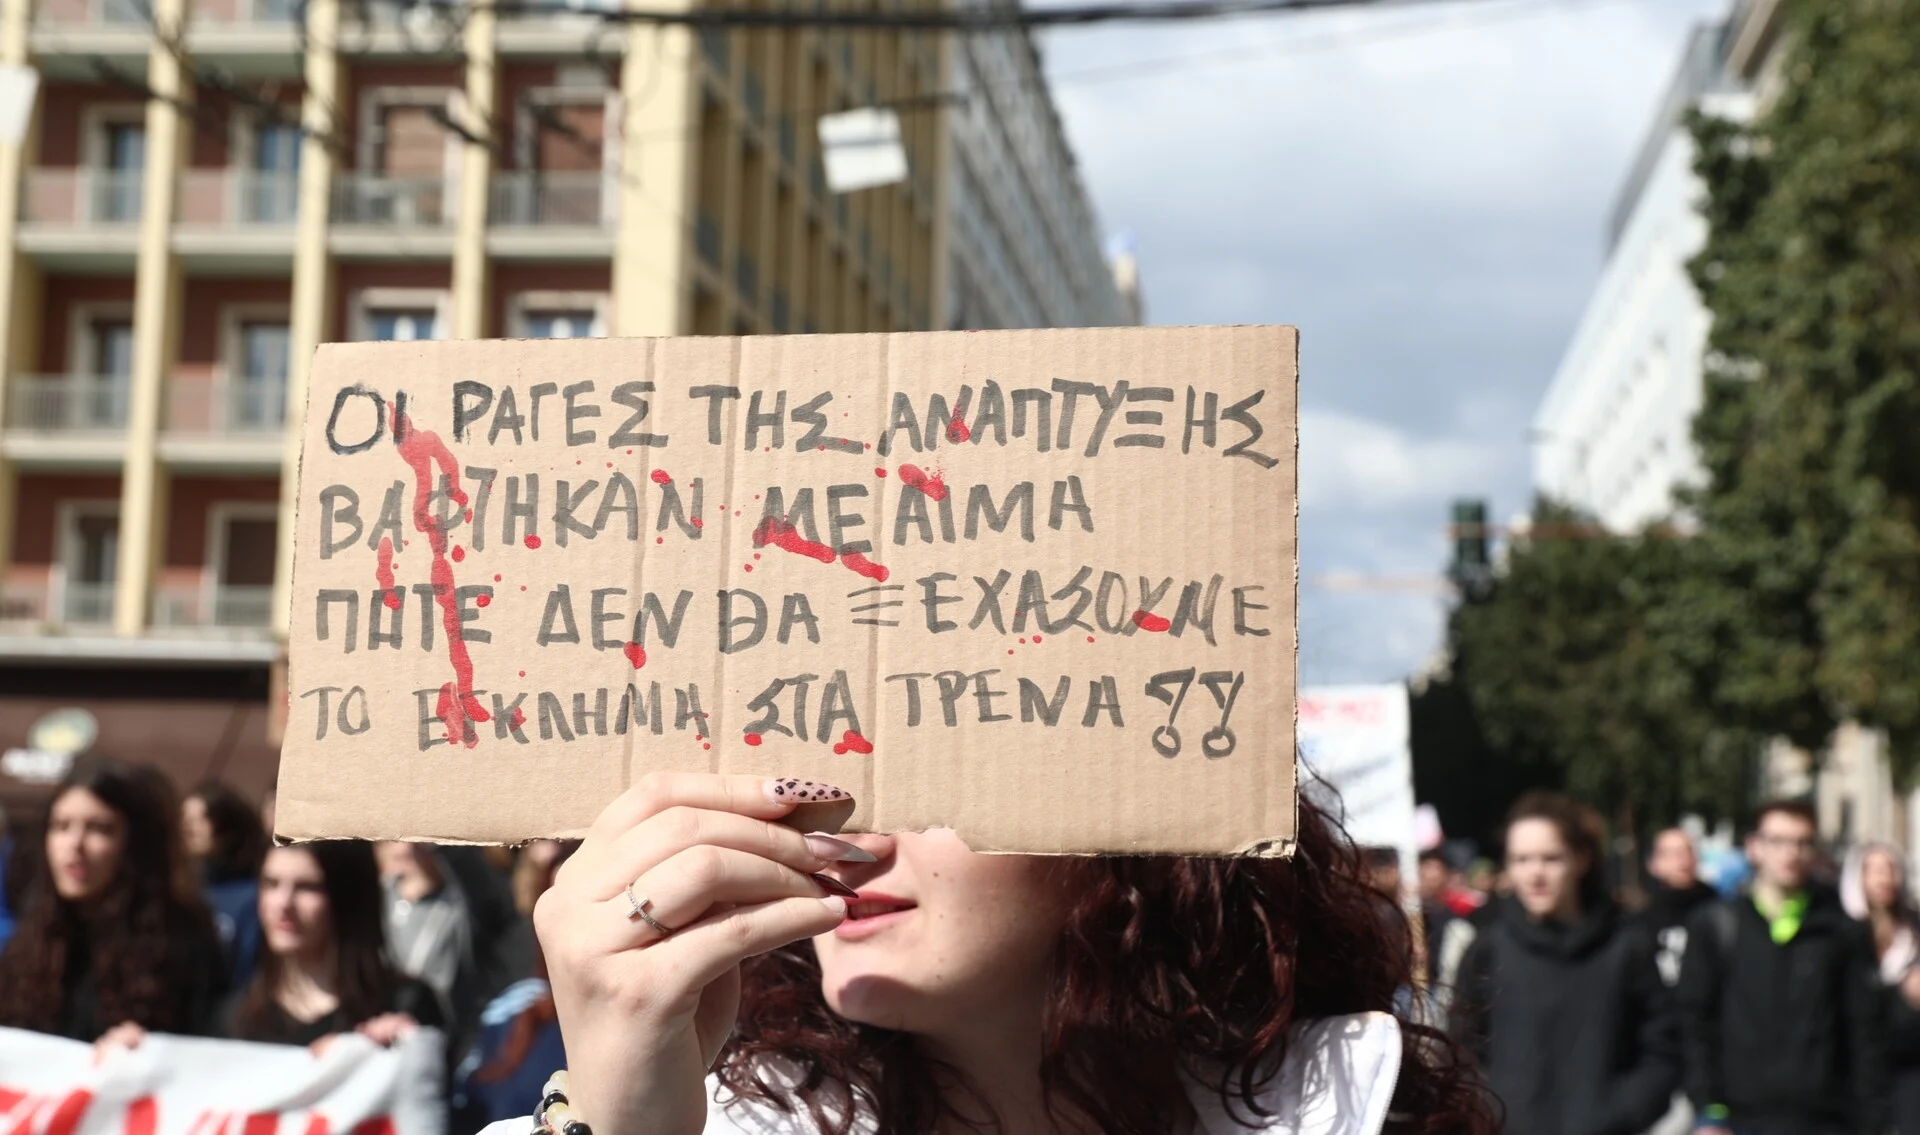 ΟΙ ΡΑΓΕΣ ΤΗΣ ΑΝΑΠΤΥΞΗΣ
ΒΑΦΤΗΚΑΝ ΜΕ ΑΙΜΑ
ΠΟΤΕ ΔΕΝ ΘΑ ΞΕΧΑΣΟΥΜΕ
ΤΟ ΕΓΚΛΗΜΑ ΣΤΑ ΤΡΕΝΑ !!